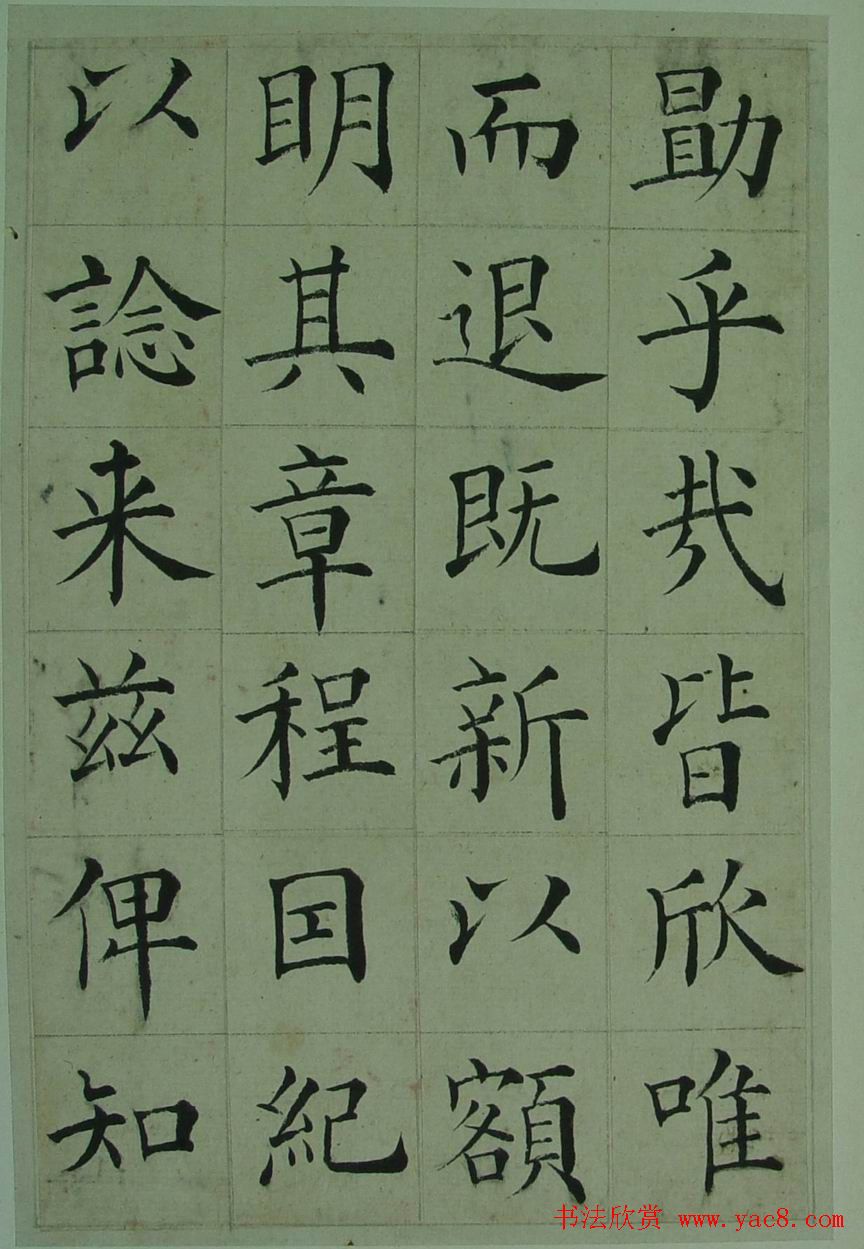 勗乎哉皆欣唯
而退既新以額
眀其章程因紀
以諗来兹俾知
书法欣赏 www.yac8.com